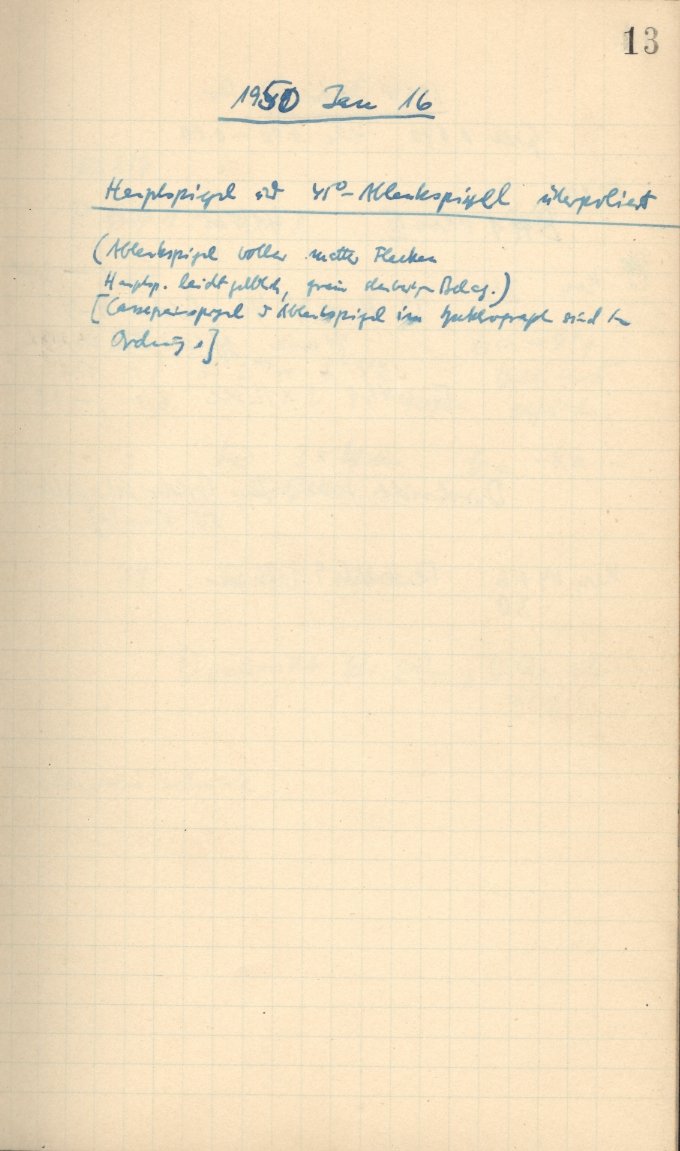 13
1950 Jan 16
Hauptspiegel und 45°-Ablenkspiegel überpoliert
(Ablenkspiegel voller matter Flecken
Hauptsp. leicht gelblich, Belag.)
[Cassegrainspiegel & Ablenkspiegel im Spektrograph sind in
Ordnung.]